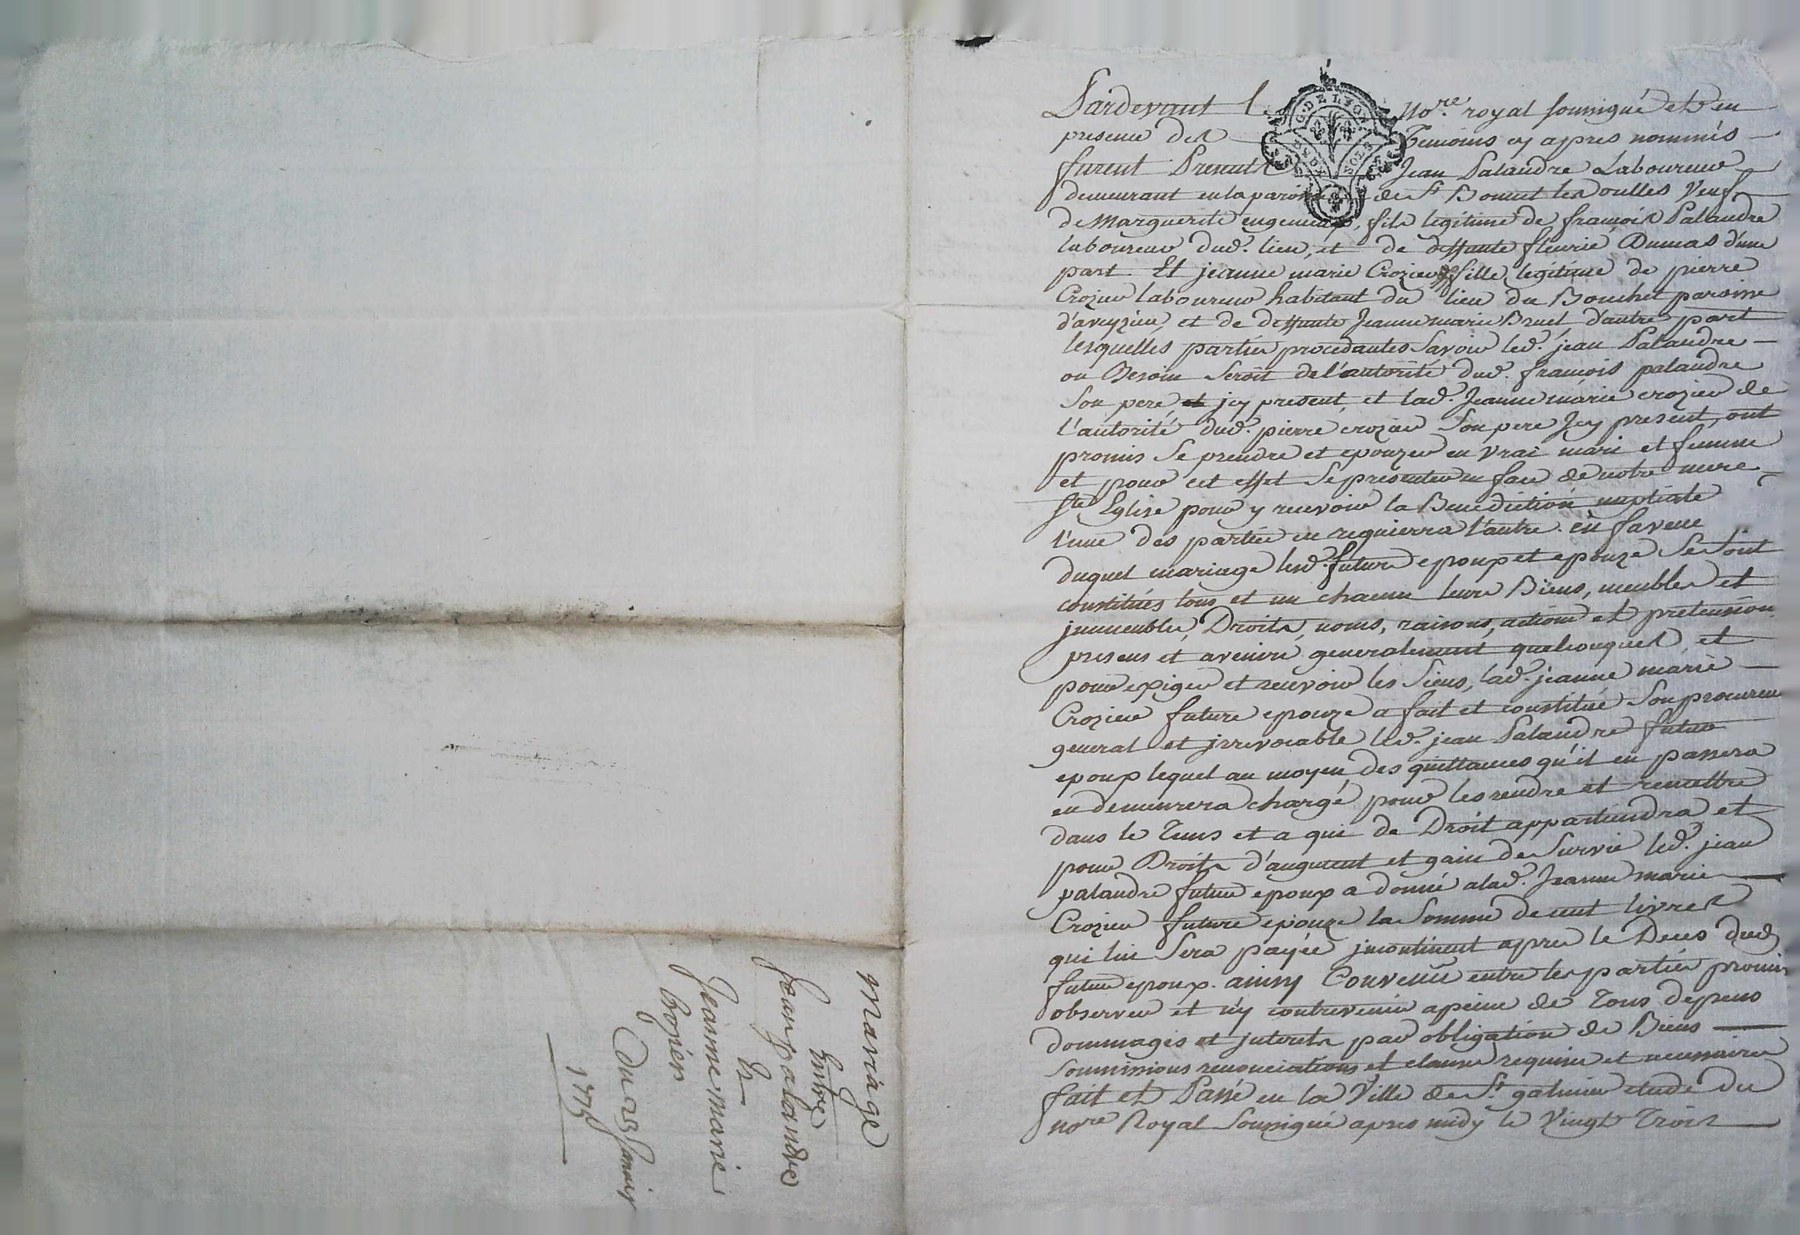 mariage
Entre
Jean palandre
Et
Jeanne marie
Crozier
Du 23 Janvier
1775
G. DE LYON
DEUX SOLS
Pardevant le No.re royal soussigné et en
presence des Temoins cy apres nommés
furent Presents Jean Palandre Laboureur
demeurant en la paroisse de St Bonnet les oulles Veuf
de Marguerite , fils legitime de françois Palandre
laboureur dud. lieu, et de deffunte fleurie Dumas d'une
part. Et jeanne marie Crozier fille legitime de pierre
Crozier laboureur habitant du lieu du Bouchet paroisse
d'aveyzieu, et de deffunte Jeanne marie Bruel d'autre part
lesquelles parties procedantes savoir led. jean Palandre
ou Besoin seroit de l'autorité dud. françois palandre
son pere jcy present, et lad. Jeanne marie crozier de
l'autorité dud. pierre crozier son pere Jcy present, ont
promis se prendre et epouzer en vrai mari et femme
et pour cet effet se presenter en face de notre mere
Ste Eglise pour y recevoir la Benediction nuptiale
l'une des parties en requierra l'autre. en faveur
duquel mariage lesd. futurs epoux et epouze se sont
constitués tous et un chacun leurs Biens, meubles et
jmmeubles, Droits, noms, raisons, actions et pretensions
presens et avenirs generalement quelconques et
pour exiger et recevoir les siens, lad. jeanne marie
Crozier future epouze a fait et constitué son procureur
general et jrrevocable led. jean Palandre futur
epoux lequel au moyen des quittances qu'il en passera
en demeurera chargé pour les rendre et remettre
dans le tems et a qui de Droit appartiendra et
pour Droits d'augment et gain de survie led. jean
palandre futur epoux a donné a lad. Jeanne marie
Crozier future epouze la somme de cent livres
qui lui sera payée jncontinent apres le Deces dud.
futur epoux. ainsy Convenu entre les parties promis
observer et n'y contrevenir apeine de tous depens
dommages et jnterets par obligation de Biens
soumissions renonciations et clauses requises et necessaires
fait et Passé en la Ville de St galmier etude du
no.re Royal soussigné apres midy le Vingt Trois